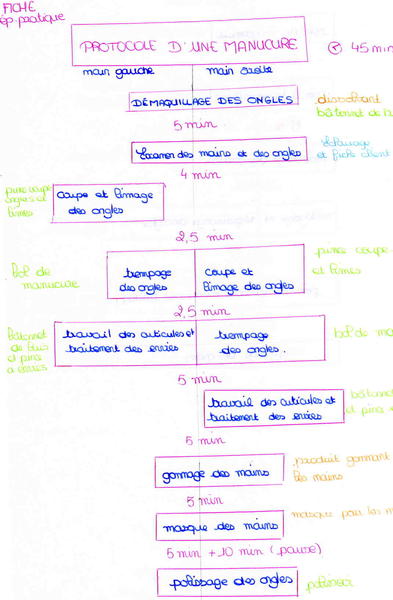 FICHE
ép. pratique
PROTOCOLE D'UNE MANUCURE
45 min
main gauche
main droite
DÉMAQUILLAGE DES ONGLES
dissolvant
bâtonnet de
5 min
Examen des mains et des ongles
et fiche client
4 min
pince coupe
ongles et
limes
Coupe et limage
des ongles
2,5 min
Bol de
manucure
trempage
des ongles
coupe et
limage des ongles
pince coupe
et limes
2,5 min
Bâtonnet
de buis
et pince
à envies
travail des cuticules et
traitement des envies
trempage
des ongles.
bol de
5 min
travail des cuticules et
traitement des envies
bâtonnet
et pince
5 min
gommage des mains
produit gommant
les mains
5 min
masque des mains
masque pour les
5 min + 10 min (pause)
polissage des ongles
polissoir